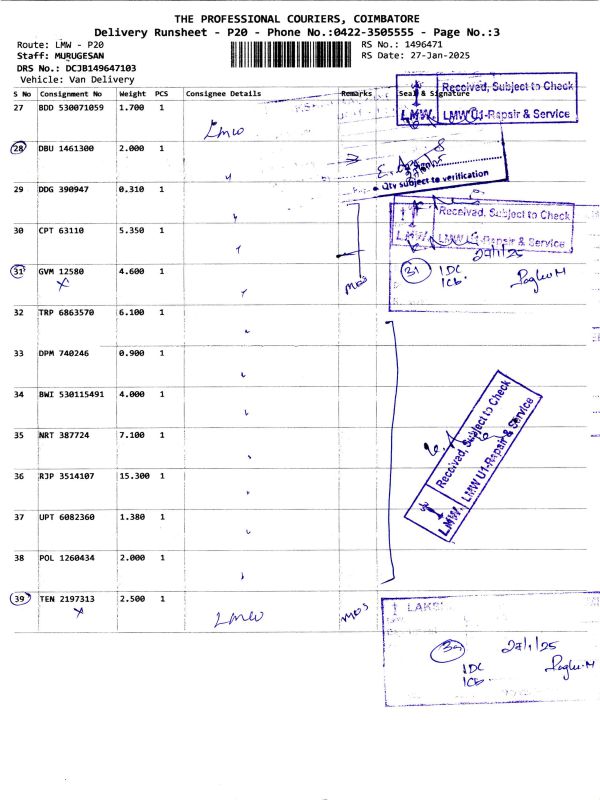 THE PROFESSIONAL COURIERS, COIMBATORE
Delivery Runsheet - P20 - Phone No.:0422-3505555 - Page No.:3
Route: LMW - P20
RS No.: 1496471
Staff: MURUGESAN
RS Date: 27-Jan-2025
DRS No.: DCJB149647103
Vehicle: Van Delivery
S No Consignment No Weight PCS Consignee Details Remarks Seal & Signature
Received, Subject to Check
LMW U1-Repair & Service
27 BDD 530071059 1.700 1 LMW
28 DBU 1461300 2.000 1 "
Qty subject to verification
29 DDG 390947 0.310 1 "
Received, Subject to Check
LMW LMW U1-Repair & Service
30 CPT 63110 5.350 1 "
27/1/25
31 GVM 12580 4.600 1 " MOS
x
31 IDC
ICB
32 TRP 6863570 6.100 1 "
33 DPM 740246 0.900 1 "
34 BWI 530115491 4.000 1 "
35 NRT 387724 7.100 1 "
36 RJP 3514107 15.300 1 "
37 UPT 6082360 1.380 1 "
38 POL 1260434 2.000 1 "
Received, Subject to Check
LMW. LMW U1-Repair & Service
39 TEN 2197313 2.500 1 LMW MOS
x
LAKS
39 27/1/25
IDC
ICB